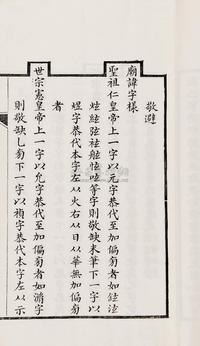 敬避
廟諱字樣
聖祖仁皇帝上一字以元字恭代至加偏旁者如鉉泫
炫絃弦等字則敬缺末筆下一字以
煜字恭代本字左以火右以日以華無加偏旁
者
世宗憲皇帝上一字以允字恭代至加偏旁者如酳字
則敬缺乚旁下一字以禎字恭代本字左以示